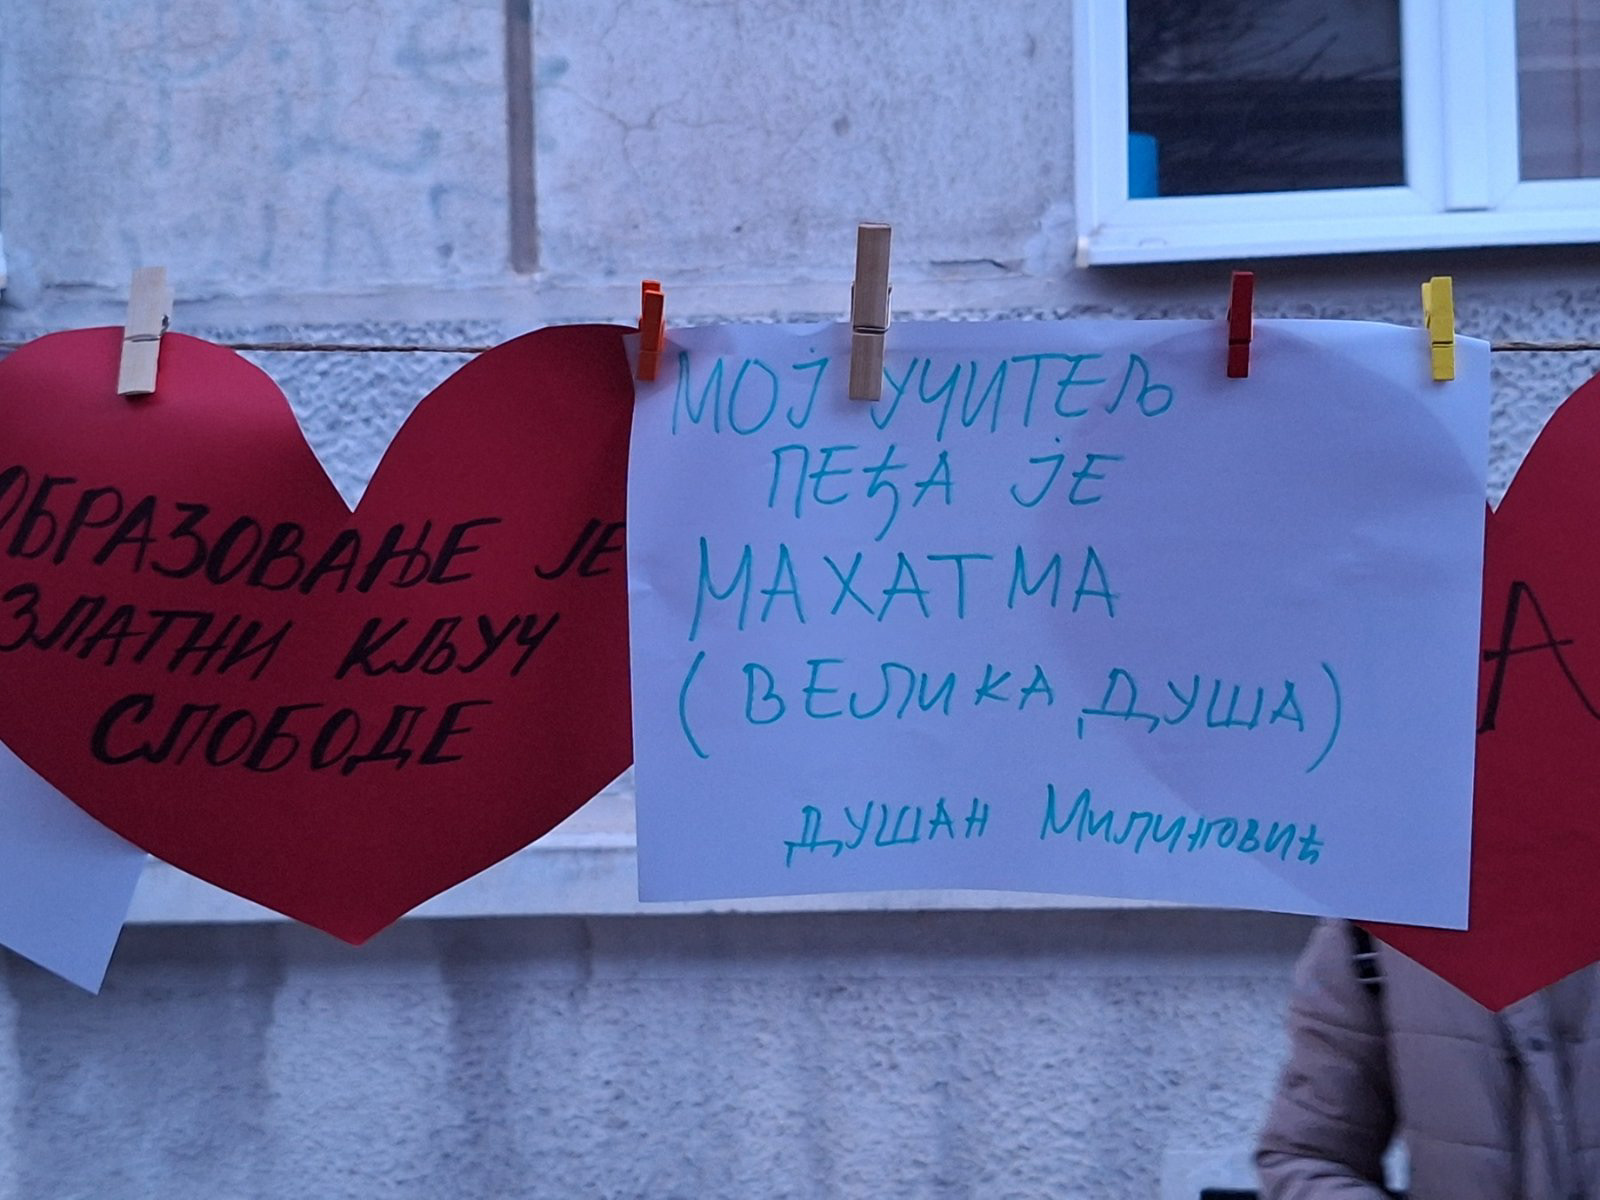 ОБРАЗОВАЊЕ ЈЕ
ЗЛАТНИ КЉУЧ
СЛОБОДЕ
МОЈ УЧИТЕЉ
ПЕЂА ЈЕ
МАХАТМА
(ВЕЛИКА ДУША)
ДУШАН Милинговић
А